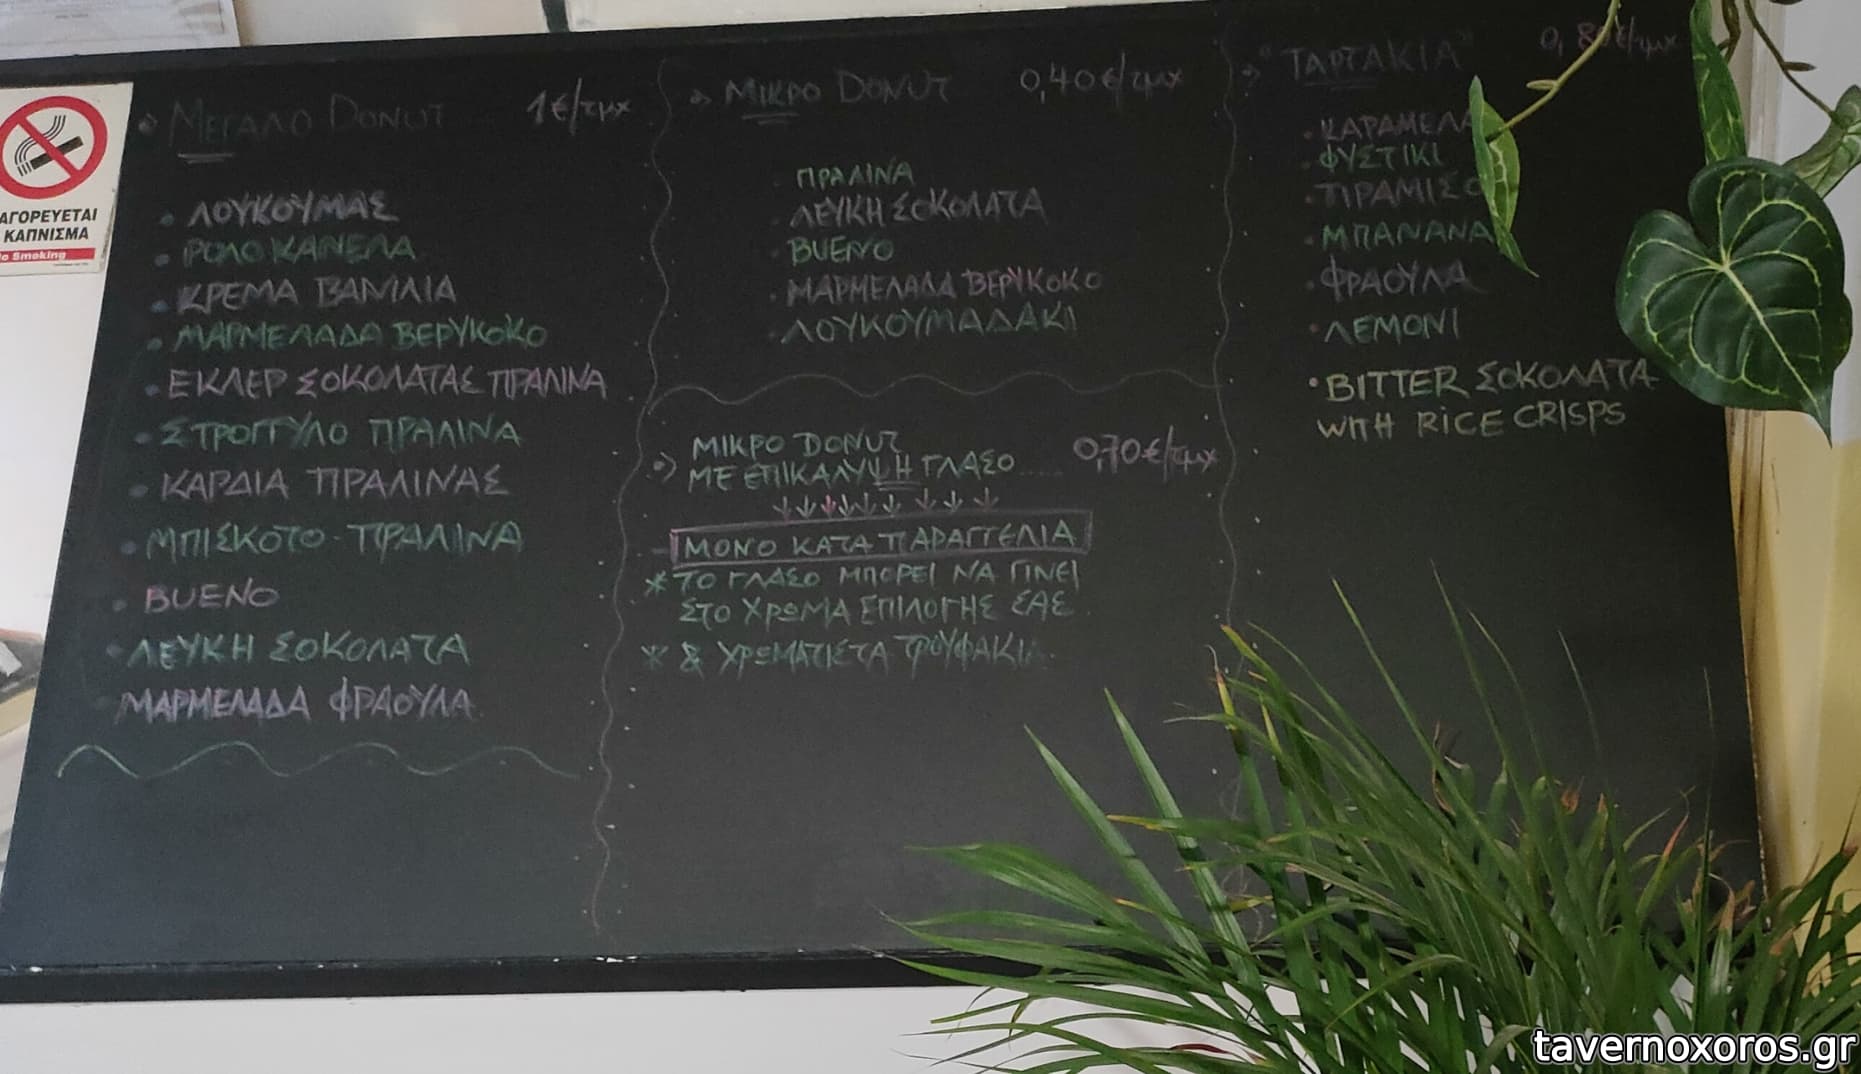 ΑΓΟΡΕΥΕΤΑΙ
ΚΑΠΝΙΣΜΑ
Smoking
ΜΕΓΑΛΟ DONUT 1€/τμχ
• ΛΟΥΚΟΥΜΑΣ
• ΡΟΛΟ ΚΑΝΕΛΑ
• ΚΡΕΜΑ ΒΑΝΙΛΙΑ
• ΜΑΡΜΕΛΑΔΑ ΒΕΡΥΚΟΚΟ
• ΕΚΛΕΡ ΣΟΚΟΛΑΤΑΣ ΠΡΑΛΙΝΑ
• ΣΤΡΟΓΓΥΛΟ ΠΡΑΛΙΝΑ
• ΚΑΡΔΙΑ ΠΡΑΛΙΝΑΣ
• ΜΠΙΣΚΟΤΟ-ΠΡΑΛΙΝΑ
• BUENO
• ΛΕΥΚΗ ΣΟΚΟΛΑΤΑ
ΜΑΡΜΕΛΑΔΑ ΦΡΑΟΥΛΑ
ΜΙΚΡΟ DONUT 0,40€/τμχ
• ΠΡΑΛΙΝΑ
• ΛΕΥΚΗ ΣΟΚΟΛΑΤΑ
• BUENO
• ΜΑΡΜΕΛΑΔΑ ΒΕΡΥΚΟΚΟ
• ΛΟΥΚΟΥΜΑΔΑΚΙ
ΜΙΚΡΟ DONUT
ΜΕ ΕΠΙΚΑΛΥΨΗ ΓΛΑΣΟ ..... 0,70€/τμχ
↓↓↓↓↓↓ ↓↓↓
ΜΟΝΟ ΚΑΤΑ ΠΑΡΑΓΓΕΛΙΑ
* ΤΟ ΓΛΑΣΟ ΜΠΟΡΕΙ ΝΑ ΓΙΝΕΙ
ΣΤΟ ΧΡΩΜΑ ΕΠΙΛΟΓΗΣ ΣΑΣ
* & ΧΡΩΜΑΤΙΣΤΑ ΤΡΟΥΦΑΚΙΑ
"ΤΑΡΤΑΚΙΑ" 0,80€/τμχ
• ΚΑΡΑΜΕΛΑ
• ΦΥΣΤΙΚΙ
• ΤΙΡΑΜΙΣΟ
• ΜΠΑΝΑΝΑ
• ΦΡΑΟΥΛΑ
• ΛΕΜΟΝΙ
• BITTER ΣΟΚΟΛΑΤΑ
WITH RICE CRISPS
tavernoxoros.gr